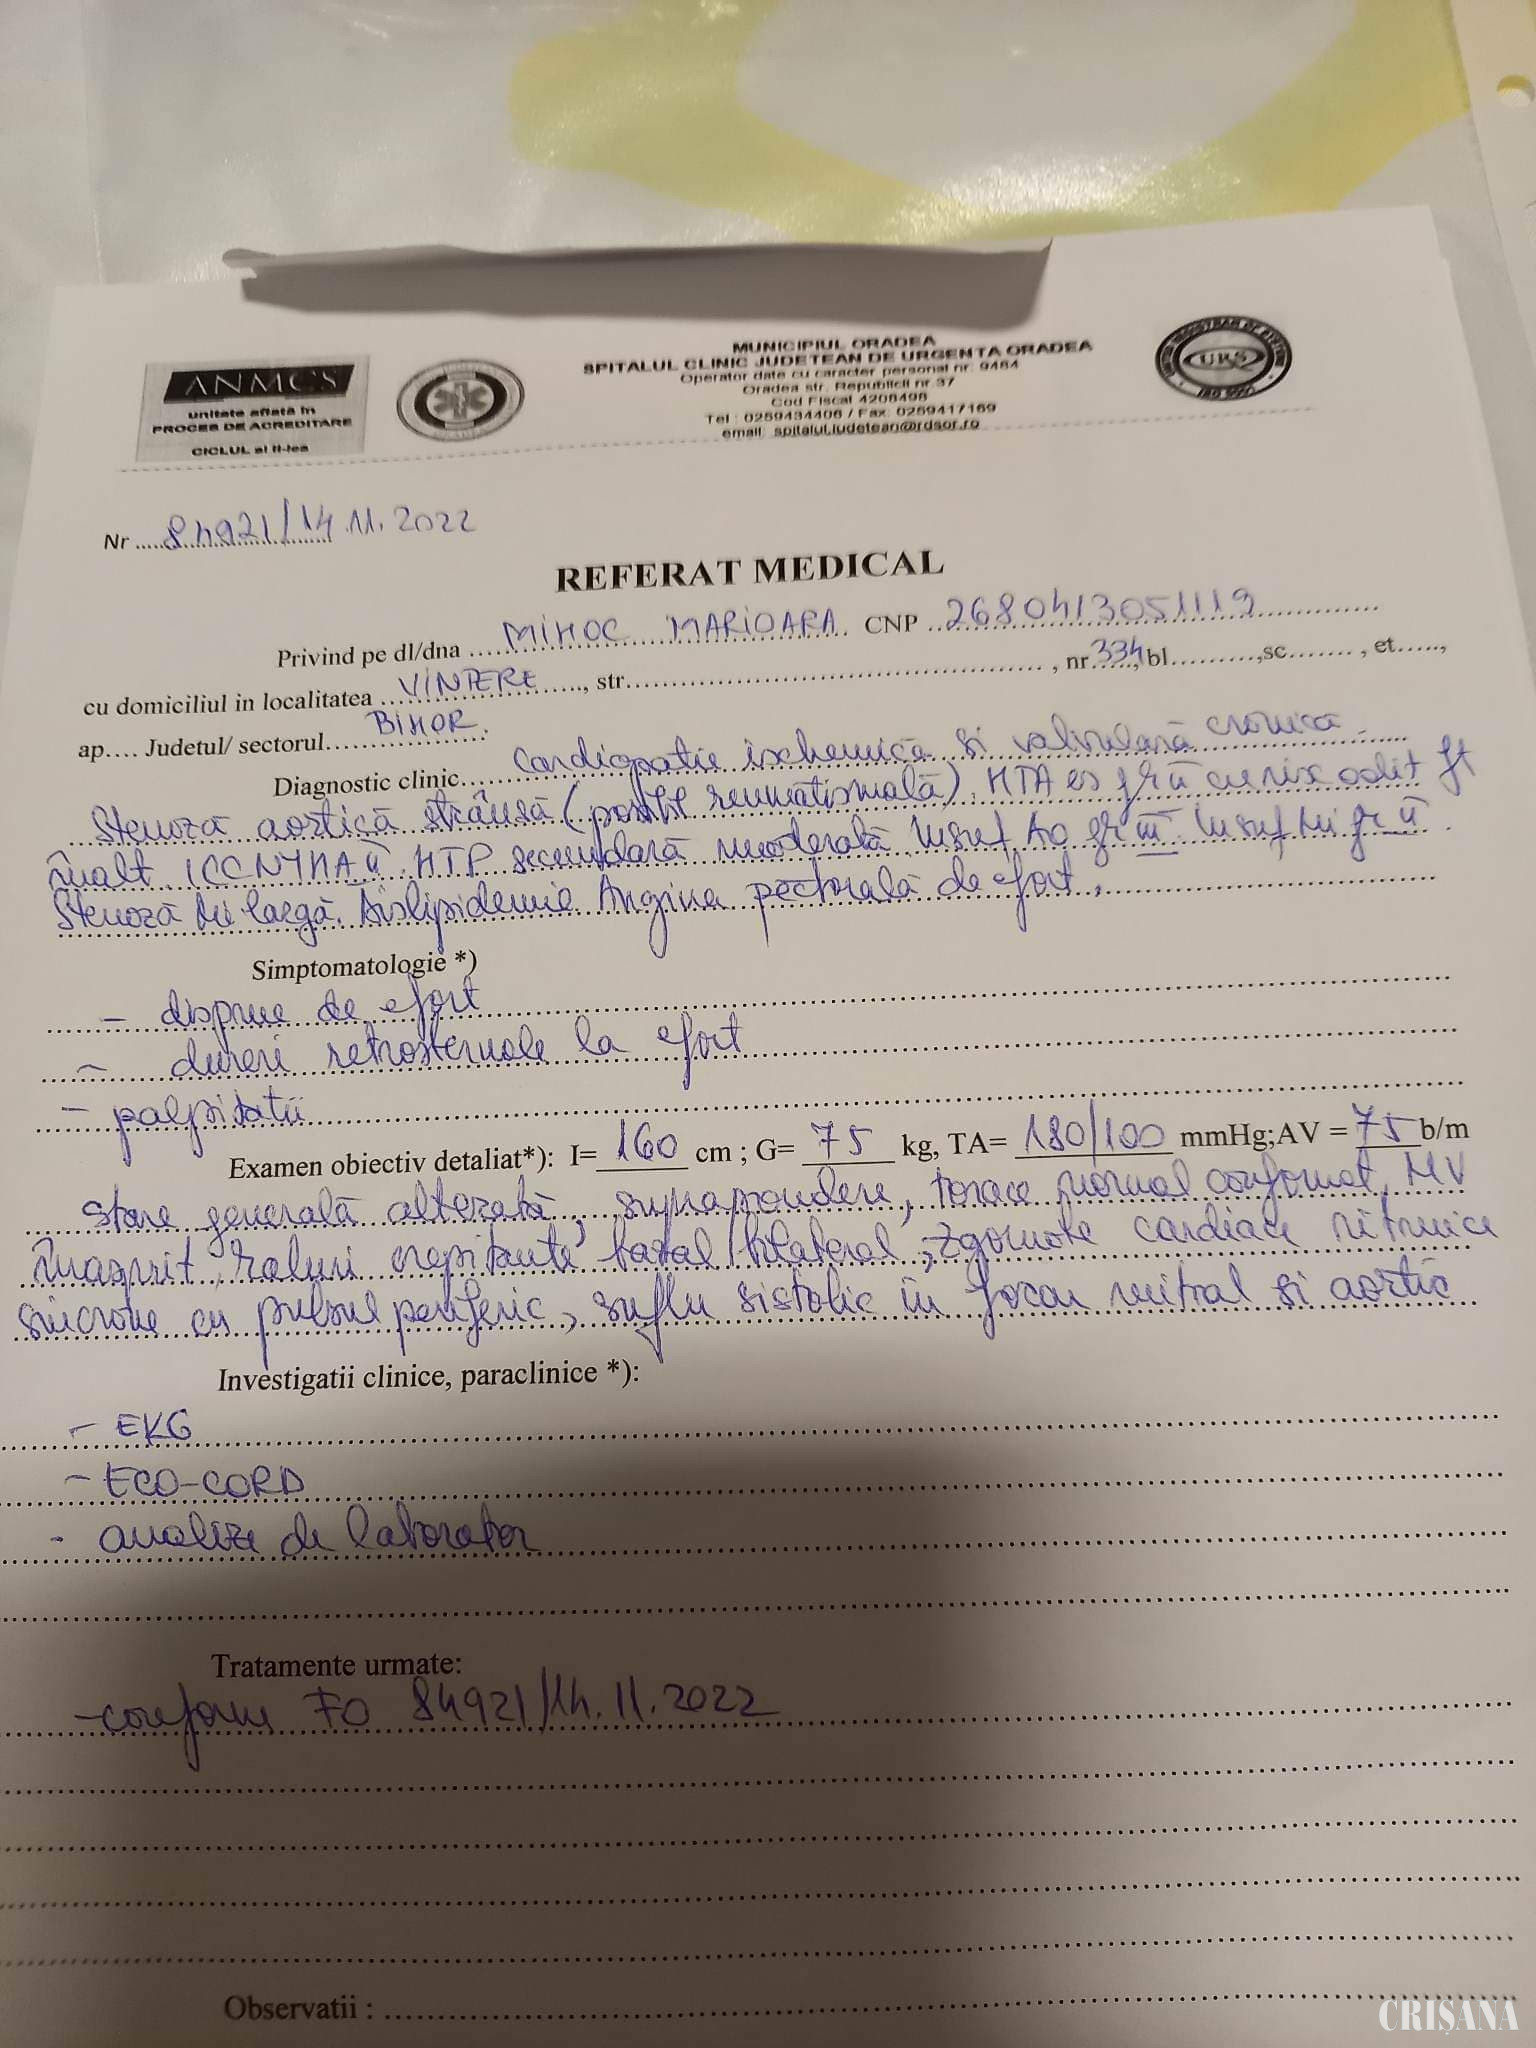 MUNICIPIUL ORADEA
SPITALUL CLINIC JUDETEAN DE URGENTA ORADEA
Operator date cu caracter personal nr. 9484
Oradea str. Republicii nr.37
Cod Fiscal 4208498
Tel : 0259434406 / Fax: 0259417169
email: spitalul.judetean@rdsor.ro
ANMCS
unitate aflată în
PROCES DE ACREDITARE
CICLUL al II-lea
URS
ISO 9001
Nr 84921/14.11.2022
REFERAT MEDICAL
Privind pe dl/dna MIHOC MARIOARA CNP 2680413051119
cu domiciliul in localitatea VINTERE, str. , nr. 334, bl. , sc. , et. ,
ap.... Judetul/ sectorul BIHOR.
Diagnostic clinic Cardiopatie ischemică si valvulară cronică.
Stenoză aortică strânsă (posibil reumatismală), HTA es gr II cu risc adit ft
înalt. ICC NYHA II. HTP secundară moderată. Insuf Ao gr III. Insuf Mi gr II.
Stenoză Mi largă. Dislipidemie. Angina pectorală de efort.
Simptomatologie *)
- dispnee de efort
- dureri retrosternale la efort
- palpitatii
Examen obiectiv detaliat*): I= 160 cm ; G= 75 kg, TA= 180/100 mmHg;AV = 75 b/m
stare generală alterată, suprapondere, torace normal conformat, MV
înasprit, raluri crepitante bazal bilateral, zgomote cardiace ritmice
sincrone cu pulsul periferic, suflu sistolic in focar mitral si aortic
Investigatii clinice, paraclinice *):
- EKG
- ECO-CORD
- analize de laborator
Tratamente urmate:
- conform FO 84921/14.11.2022
Observatii :
CRIȘANA